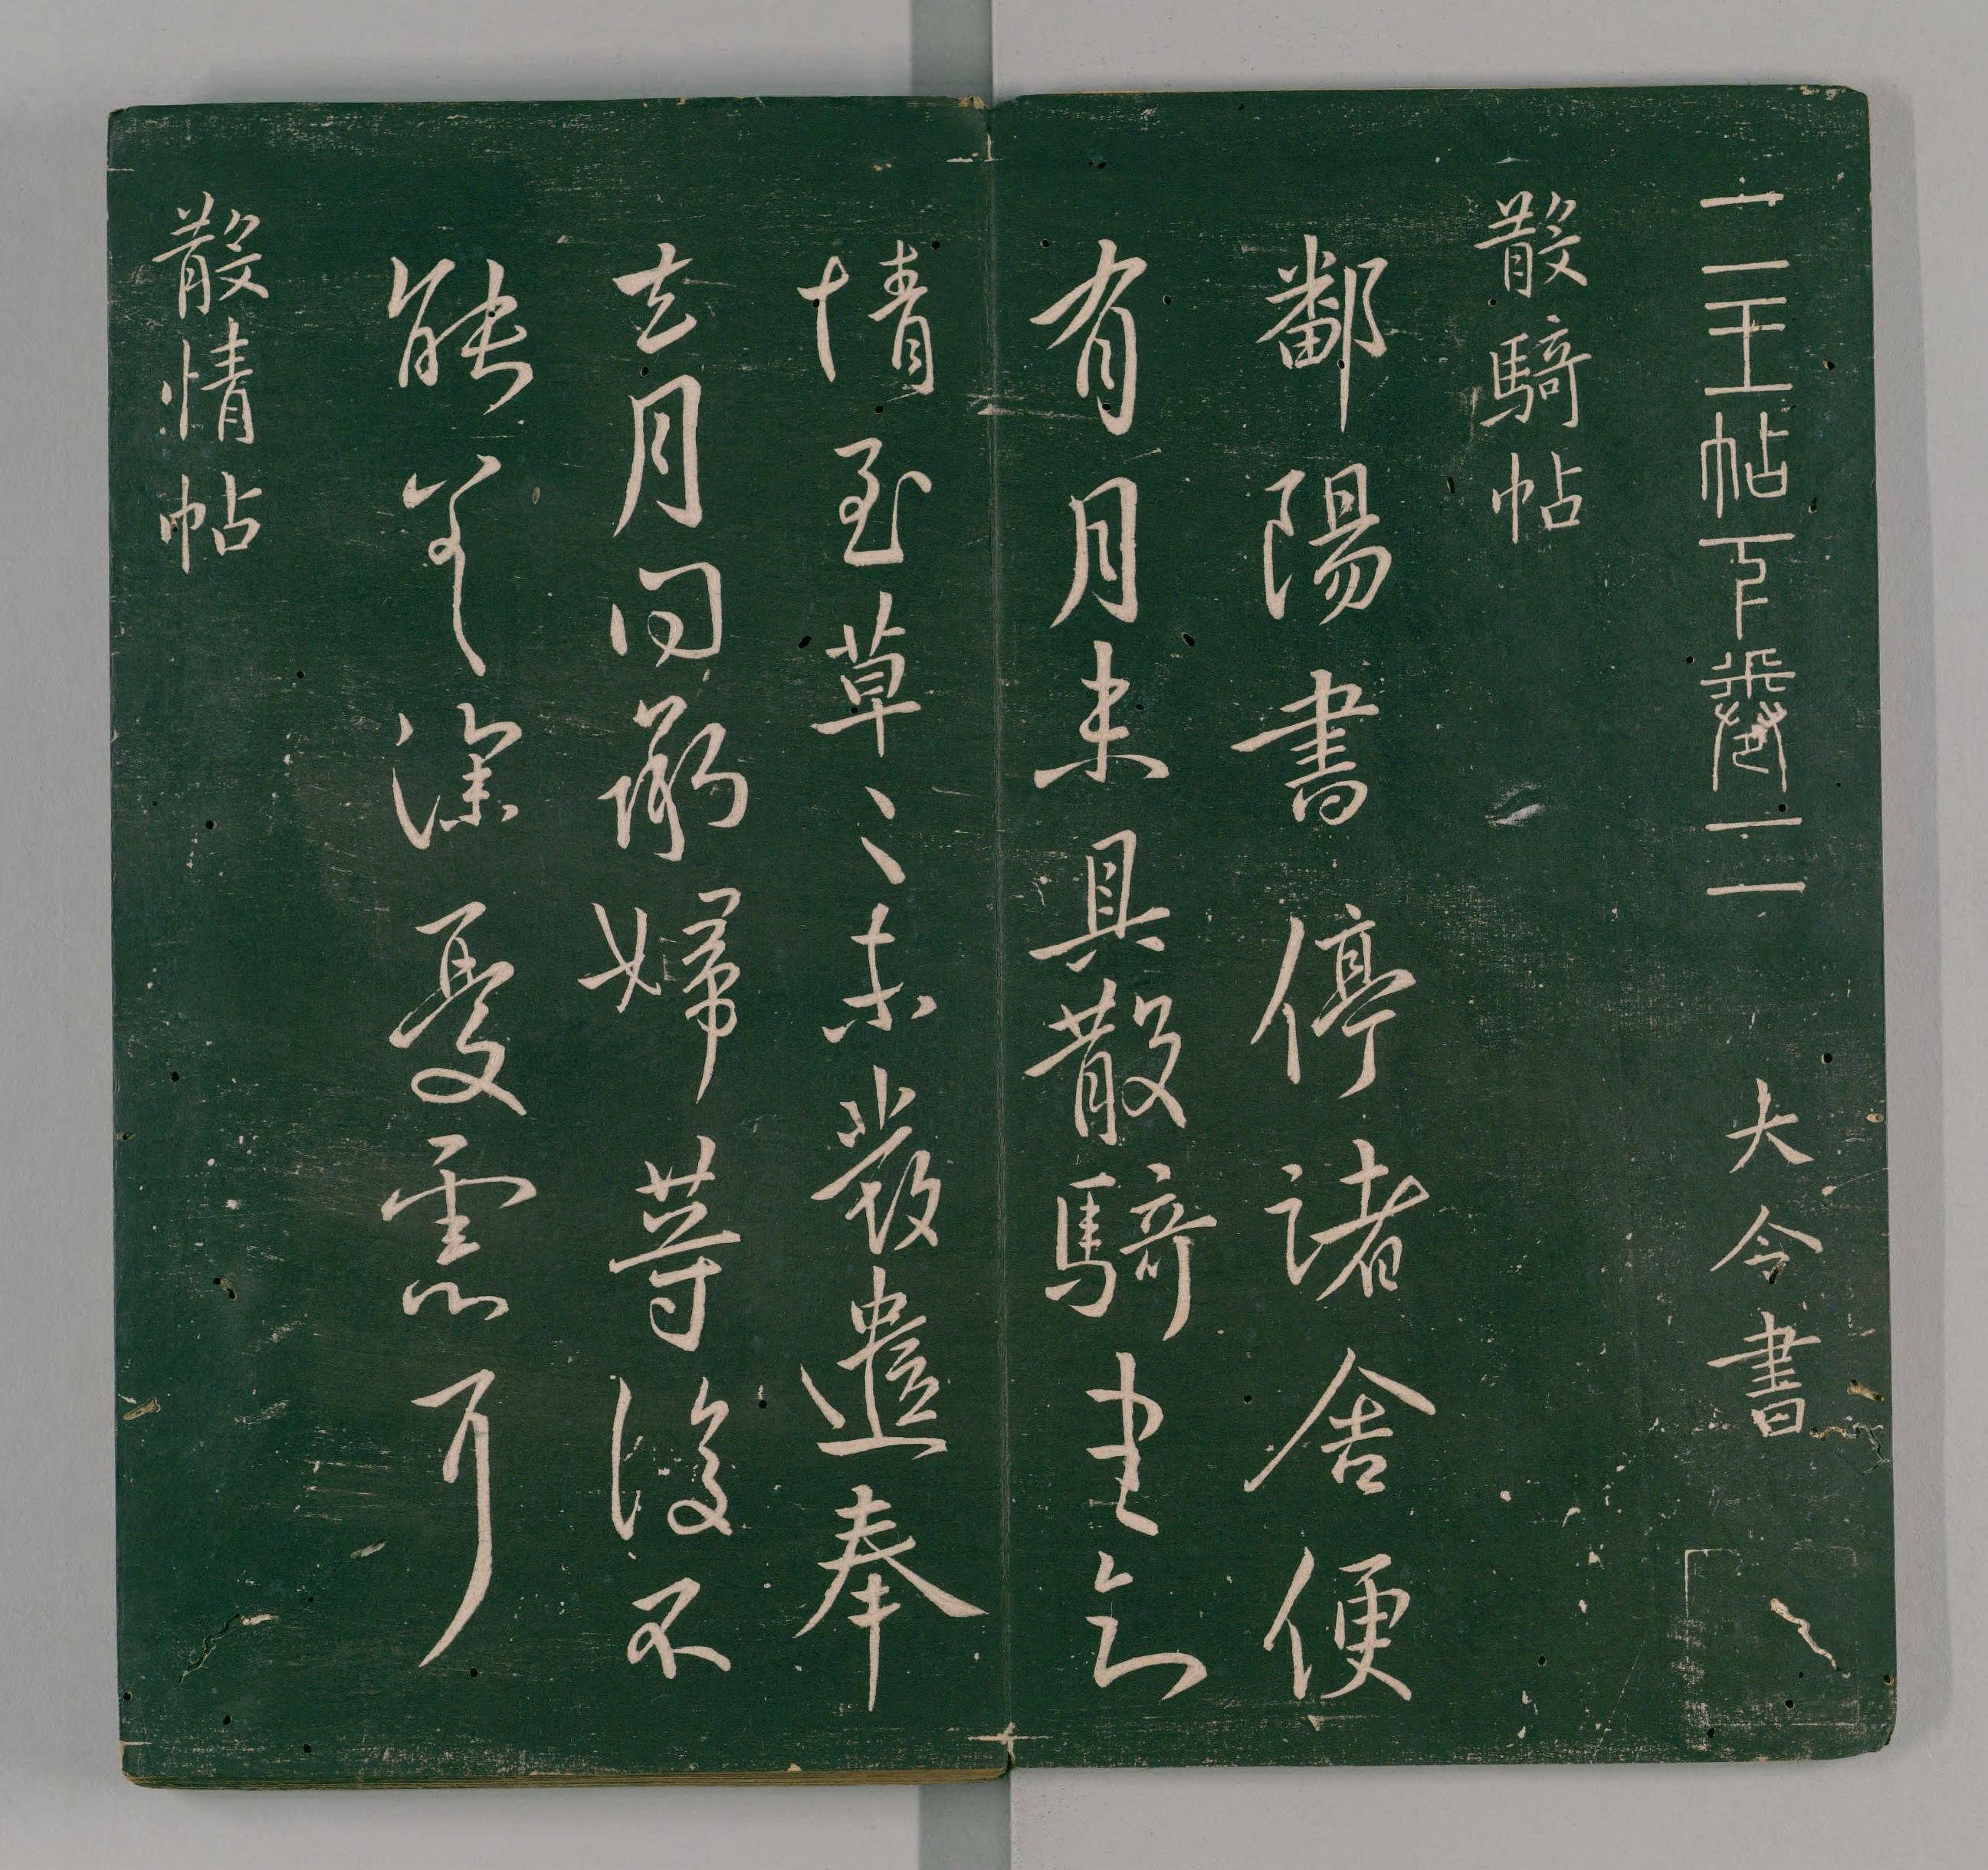 二王帖下卷二 大令書
散騎帖
鄱陽書停諸舍便
有月未具散騎書知
情至草〻未發遣奉
去月問承婦等復不
能差深憂慮耳
散情帖